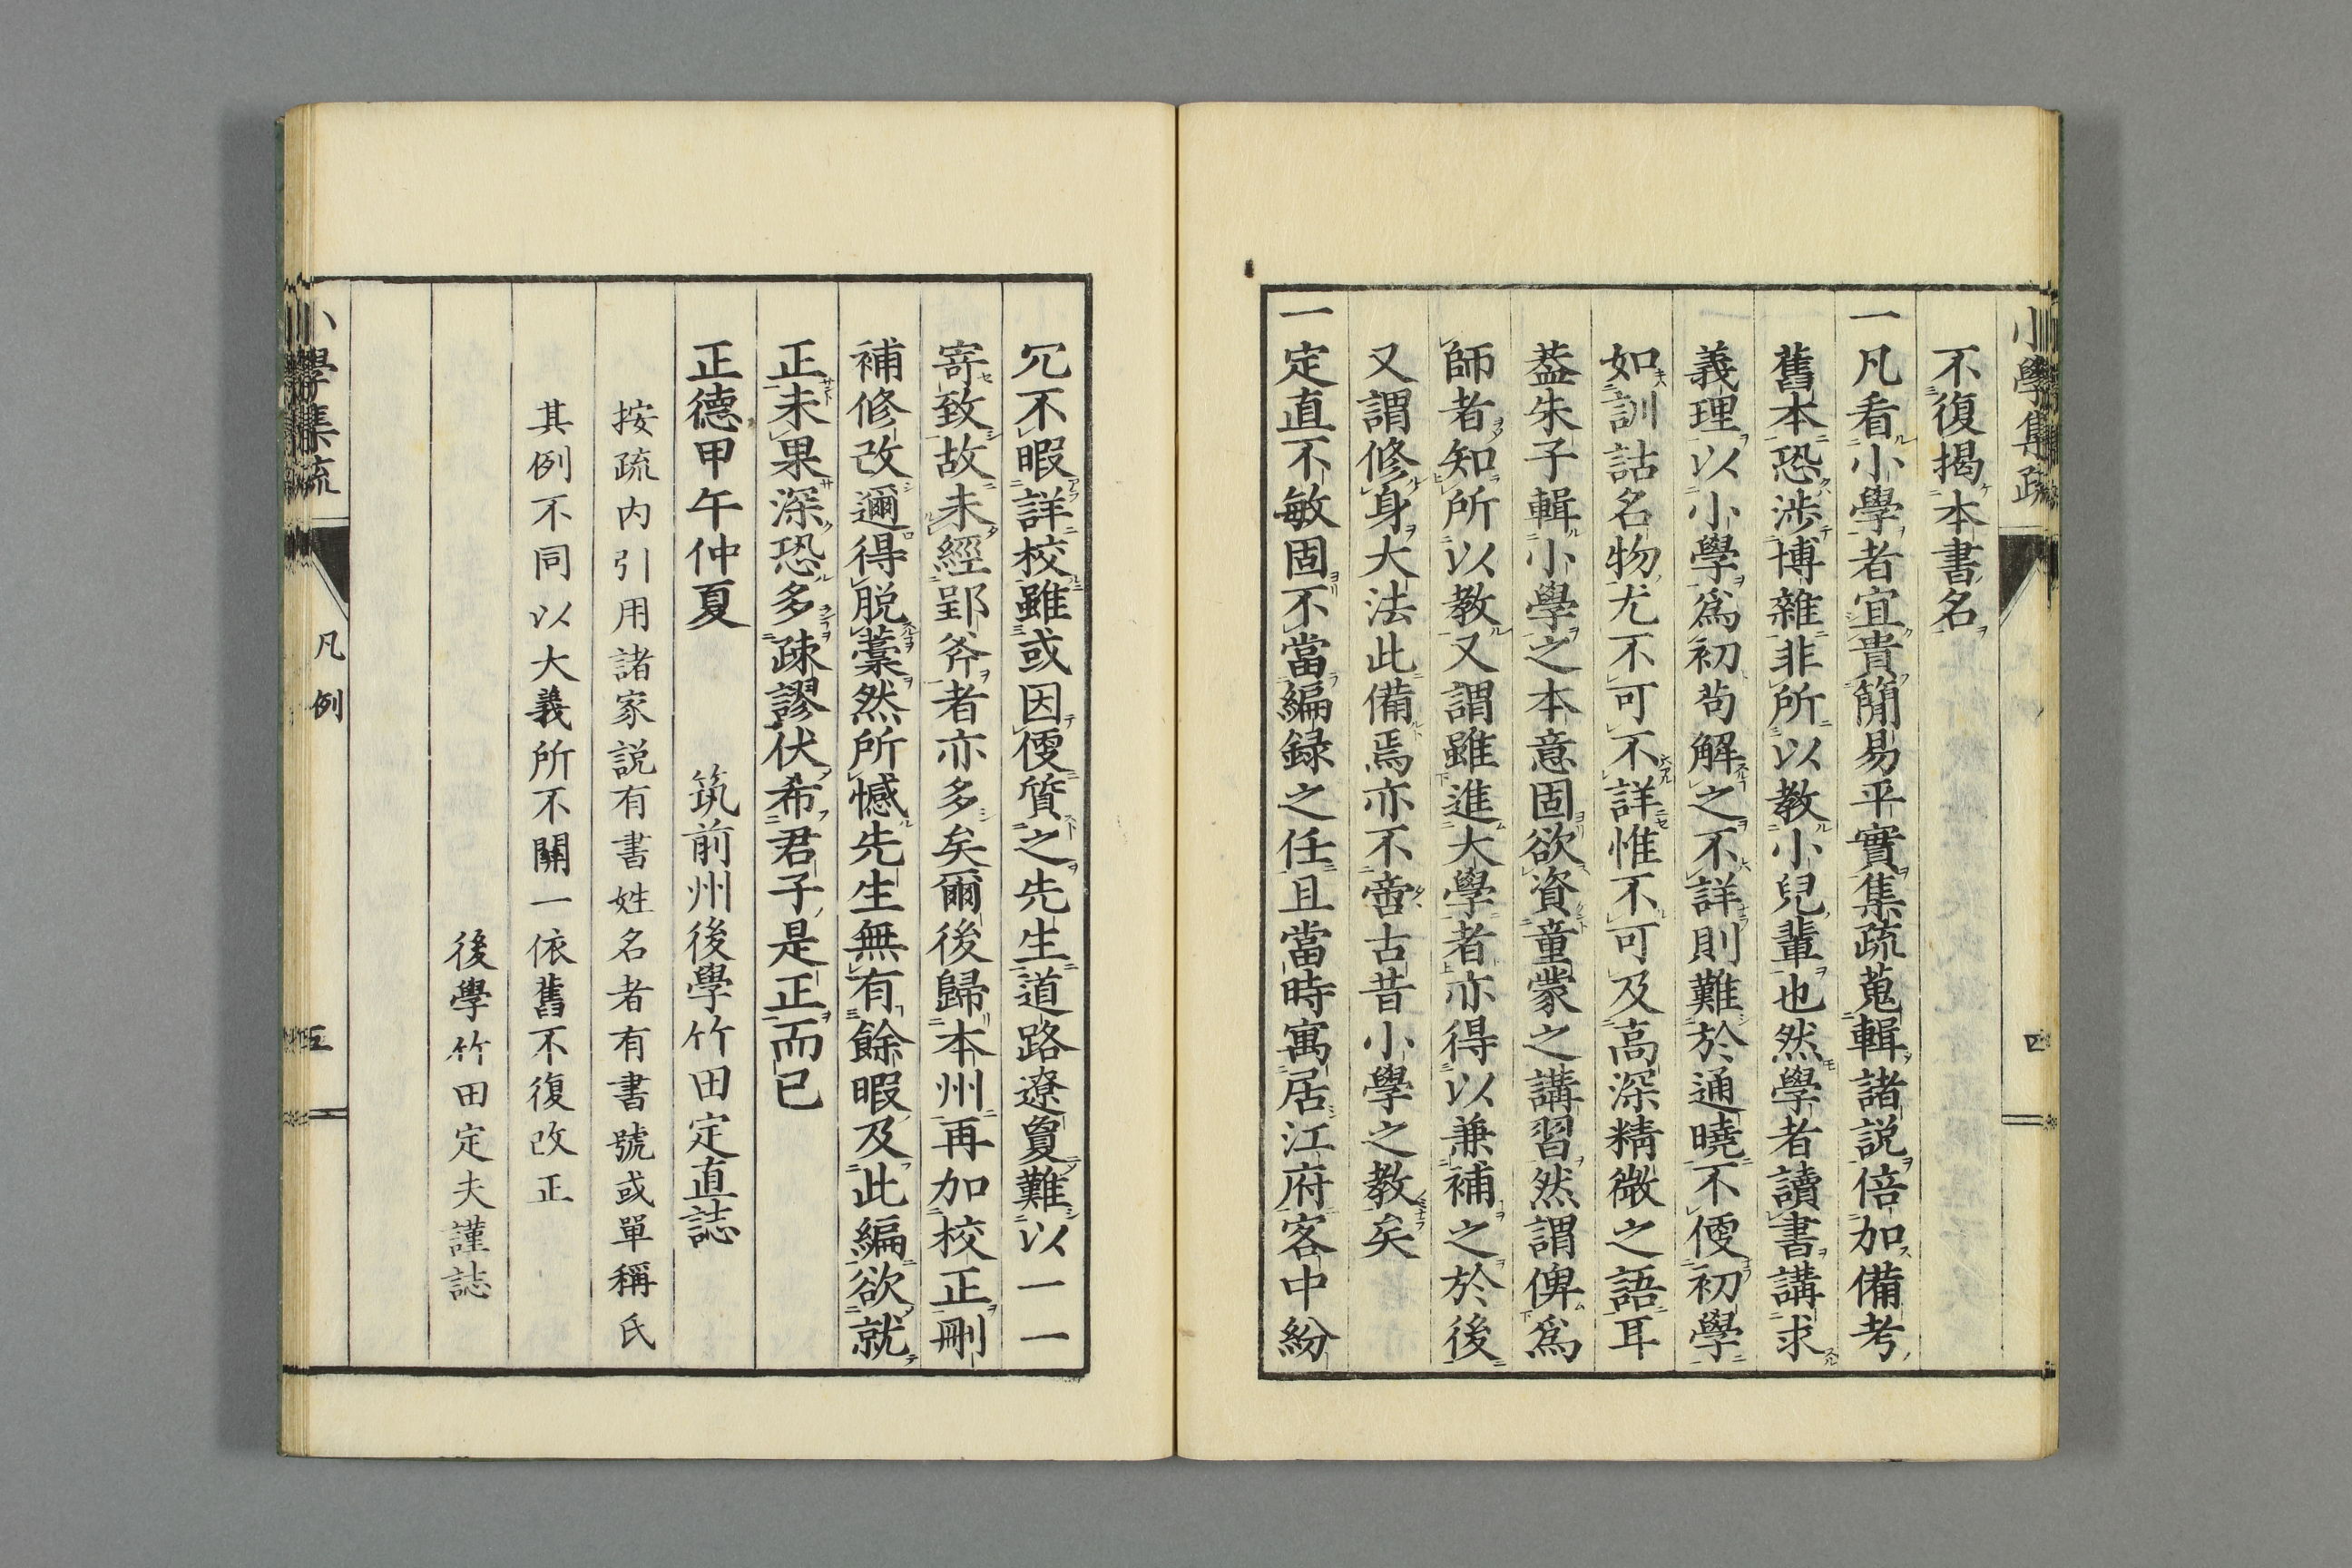 小學集疏
四
不復揭本書名
一凡看小學者宜貴簡易平實集疏蒐輯諸説倍加備考
舊本恐渉博雜非所以教小兒輩也然學者讀書講求
義理以小學爲初苟解之不詳則難於通曉不便初學
如訓詁名物尤不可不詳惟不可及高深精微之語耳
葢朱子輯小學之本意固欲資童蒙之講習然謂俾爲
師者知所以教又謂雖進大學者亦得以兼補之於後
又謂修身大法此備焉亦不啻古昔小學之教矣
一定直不敏固不當編録之任且當時寓居江府客中紛
冗不暇詳校雖或因便質之先生道路遼敻難以一一
寄致故未經郢斧者亦多矣爾後歸本州再加校正刪
補修改邇得脱藁然所憾先生無有餘暇及此編欲就
正未果深恐多疎謬伏希君子是正而已
正德甲午仲夏　　筑前州後學竹田定直誌
按疏内引用諸家説有書姓名者有書號或單稱氏
其例不同以大義所不關一依舊不復改正
後學竹田定夫謹誌
小學集疏
凡例
五